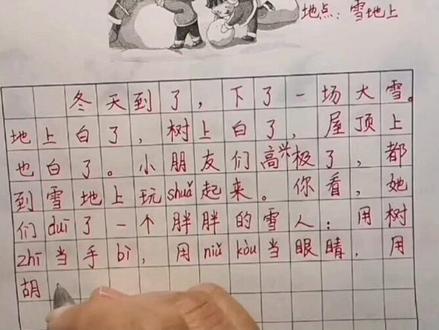 地点：雪地上
冬天到了，下了一场大雪。
地上白了，树上白了，屋顶上
也白了。小朋友们高兴极了，都
到雪地上玩shuǎ起来。你看，她
们duī了一个胖胖的雪人：用树
zhī当手bì，用niǔ kòu当眼睛，用
胡